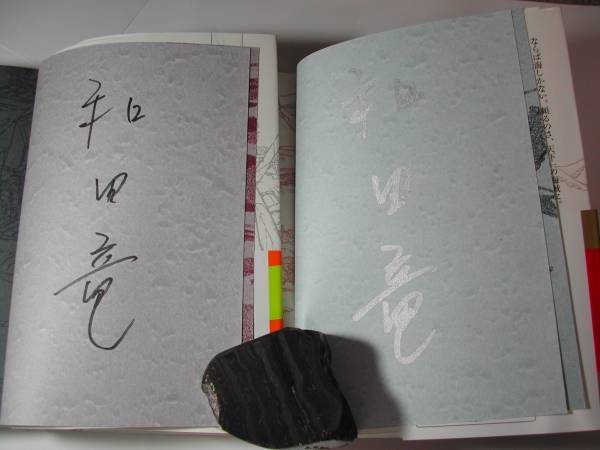 和田竜
和田竜
ならば海しかない。